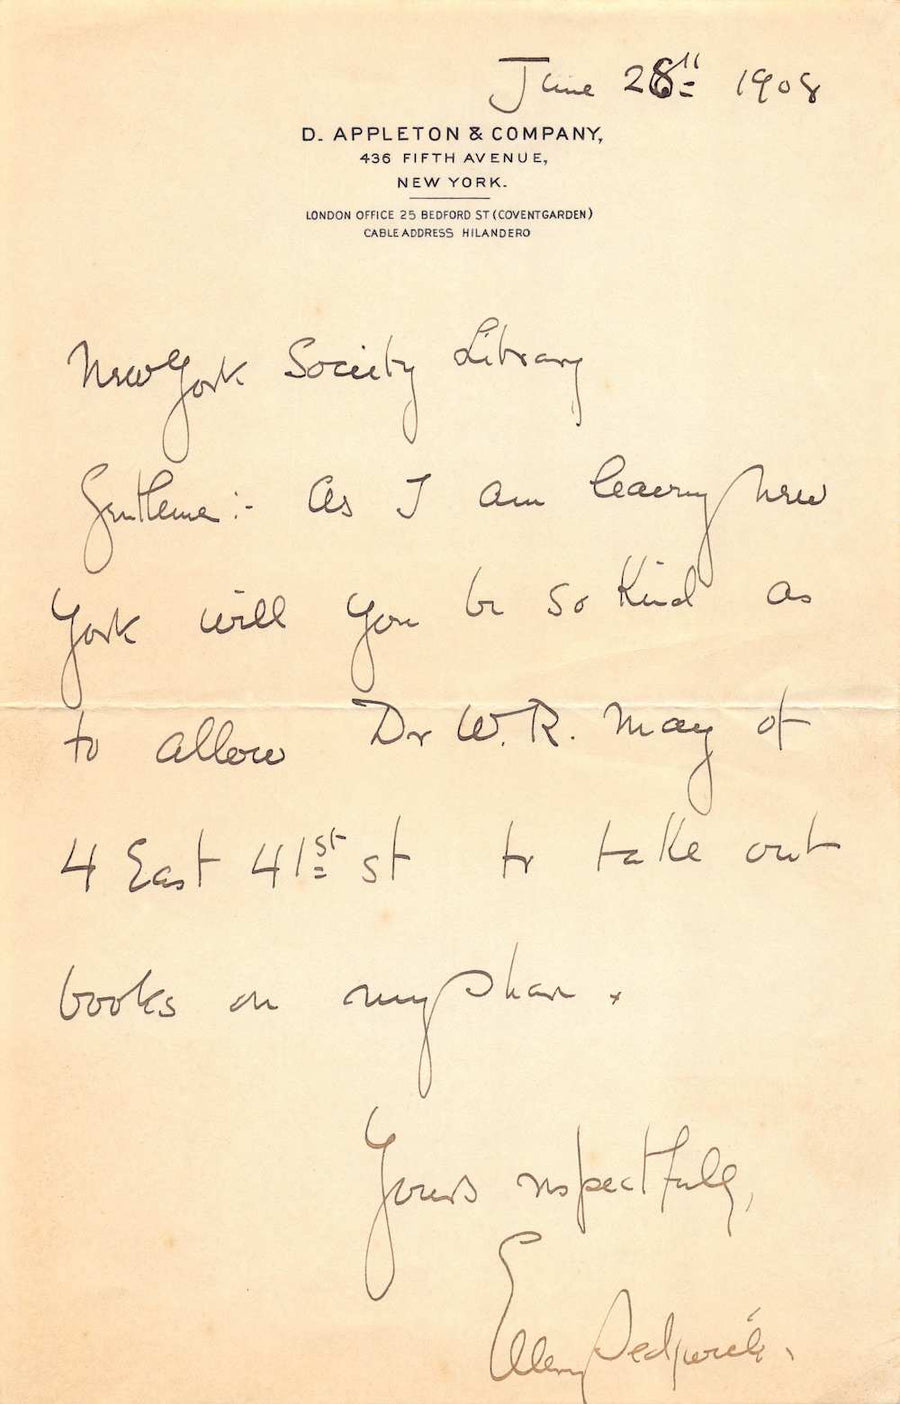 June 26th 1908
D. APPLETON & COMPANY,
436 FIFTH AVENUE,
NEW YORK.
LONDON OFFICE 25 BEDFORD ST (COVENTGARDEN)
CABLE ADDRESS HILANDERO
New York Society Library
Gentlemen:- As I am leaving New
York will you be so kind as
to allow Dr W. R. May of
4 East 41st st to take out
books on my share.
Yours respectfully,
Ellery Sedgwick.